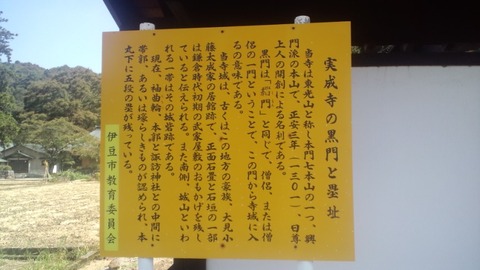 実成寺の黒門と塁址
当寺は東光山と称し本門七本山の一つ、興
門派の本山で、正安三年(一三〇一)、日尊
上人の開創による名刹である。
黒門は「緇門」と同じで、僧侶、または僧
侶の一門ということで、この門から寺域に入
るの意味である。
当寺域は、古くはこの地方の豪族、大見小
藤太成家の居館跡で、正面石畳と石垣の一部
は鎌倉時代初期の武家屋敷のおもかげを残し
ていると伝えられる。また南側、城山といわ
れる一帯はその城砦跡である。
現在、袖曲輪、本郭と諏訪神社との中間に
帯郭、あるいは壕らしきものが認められ、本
丸下に五段の塁が残っている。
伊豆市教育委員会